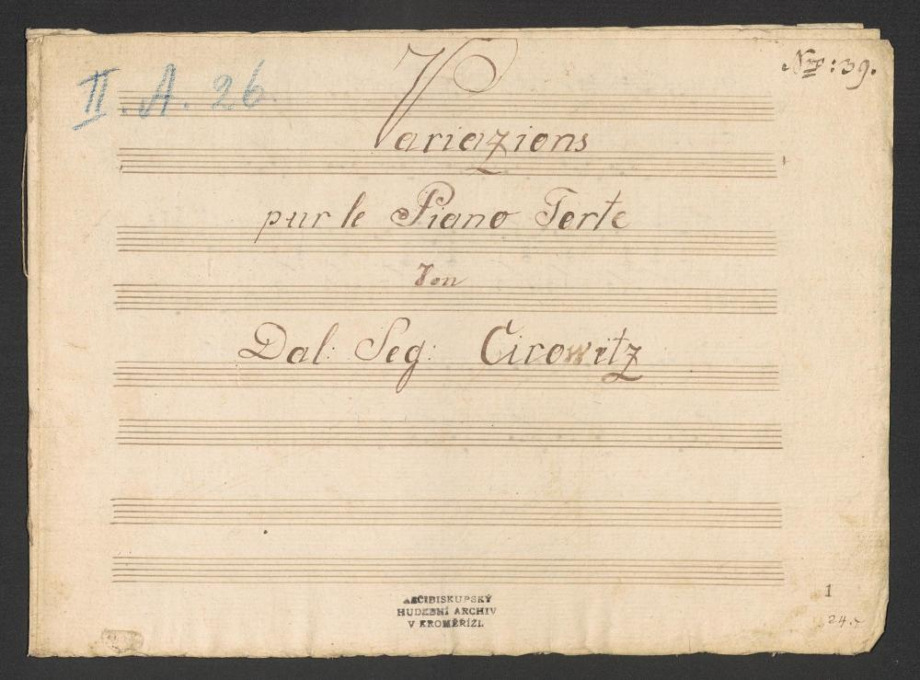 Nro: 39.
II. A. 26.
Variazions
pur le Piano Forte
Von
Dal: Seg: Cirowitz
ARCIBISKUPSKÝ
HUDEBNÍ ARCHIV
V KROMĚŘÍŽI.
1